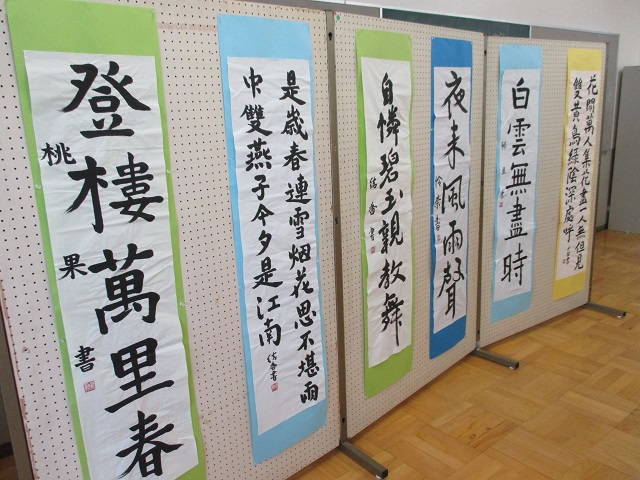 登樓萬里春
桃果書
是歳春連雪烟花思不堪雨
中雙燕子今夕是江南
結香書
自憐碧玉親教舞
結香書
夜来風雨聲
白雲無盡時
花開萬人集花盡一人無但見
雙黄鳥緑陰深處呼